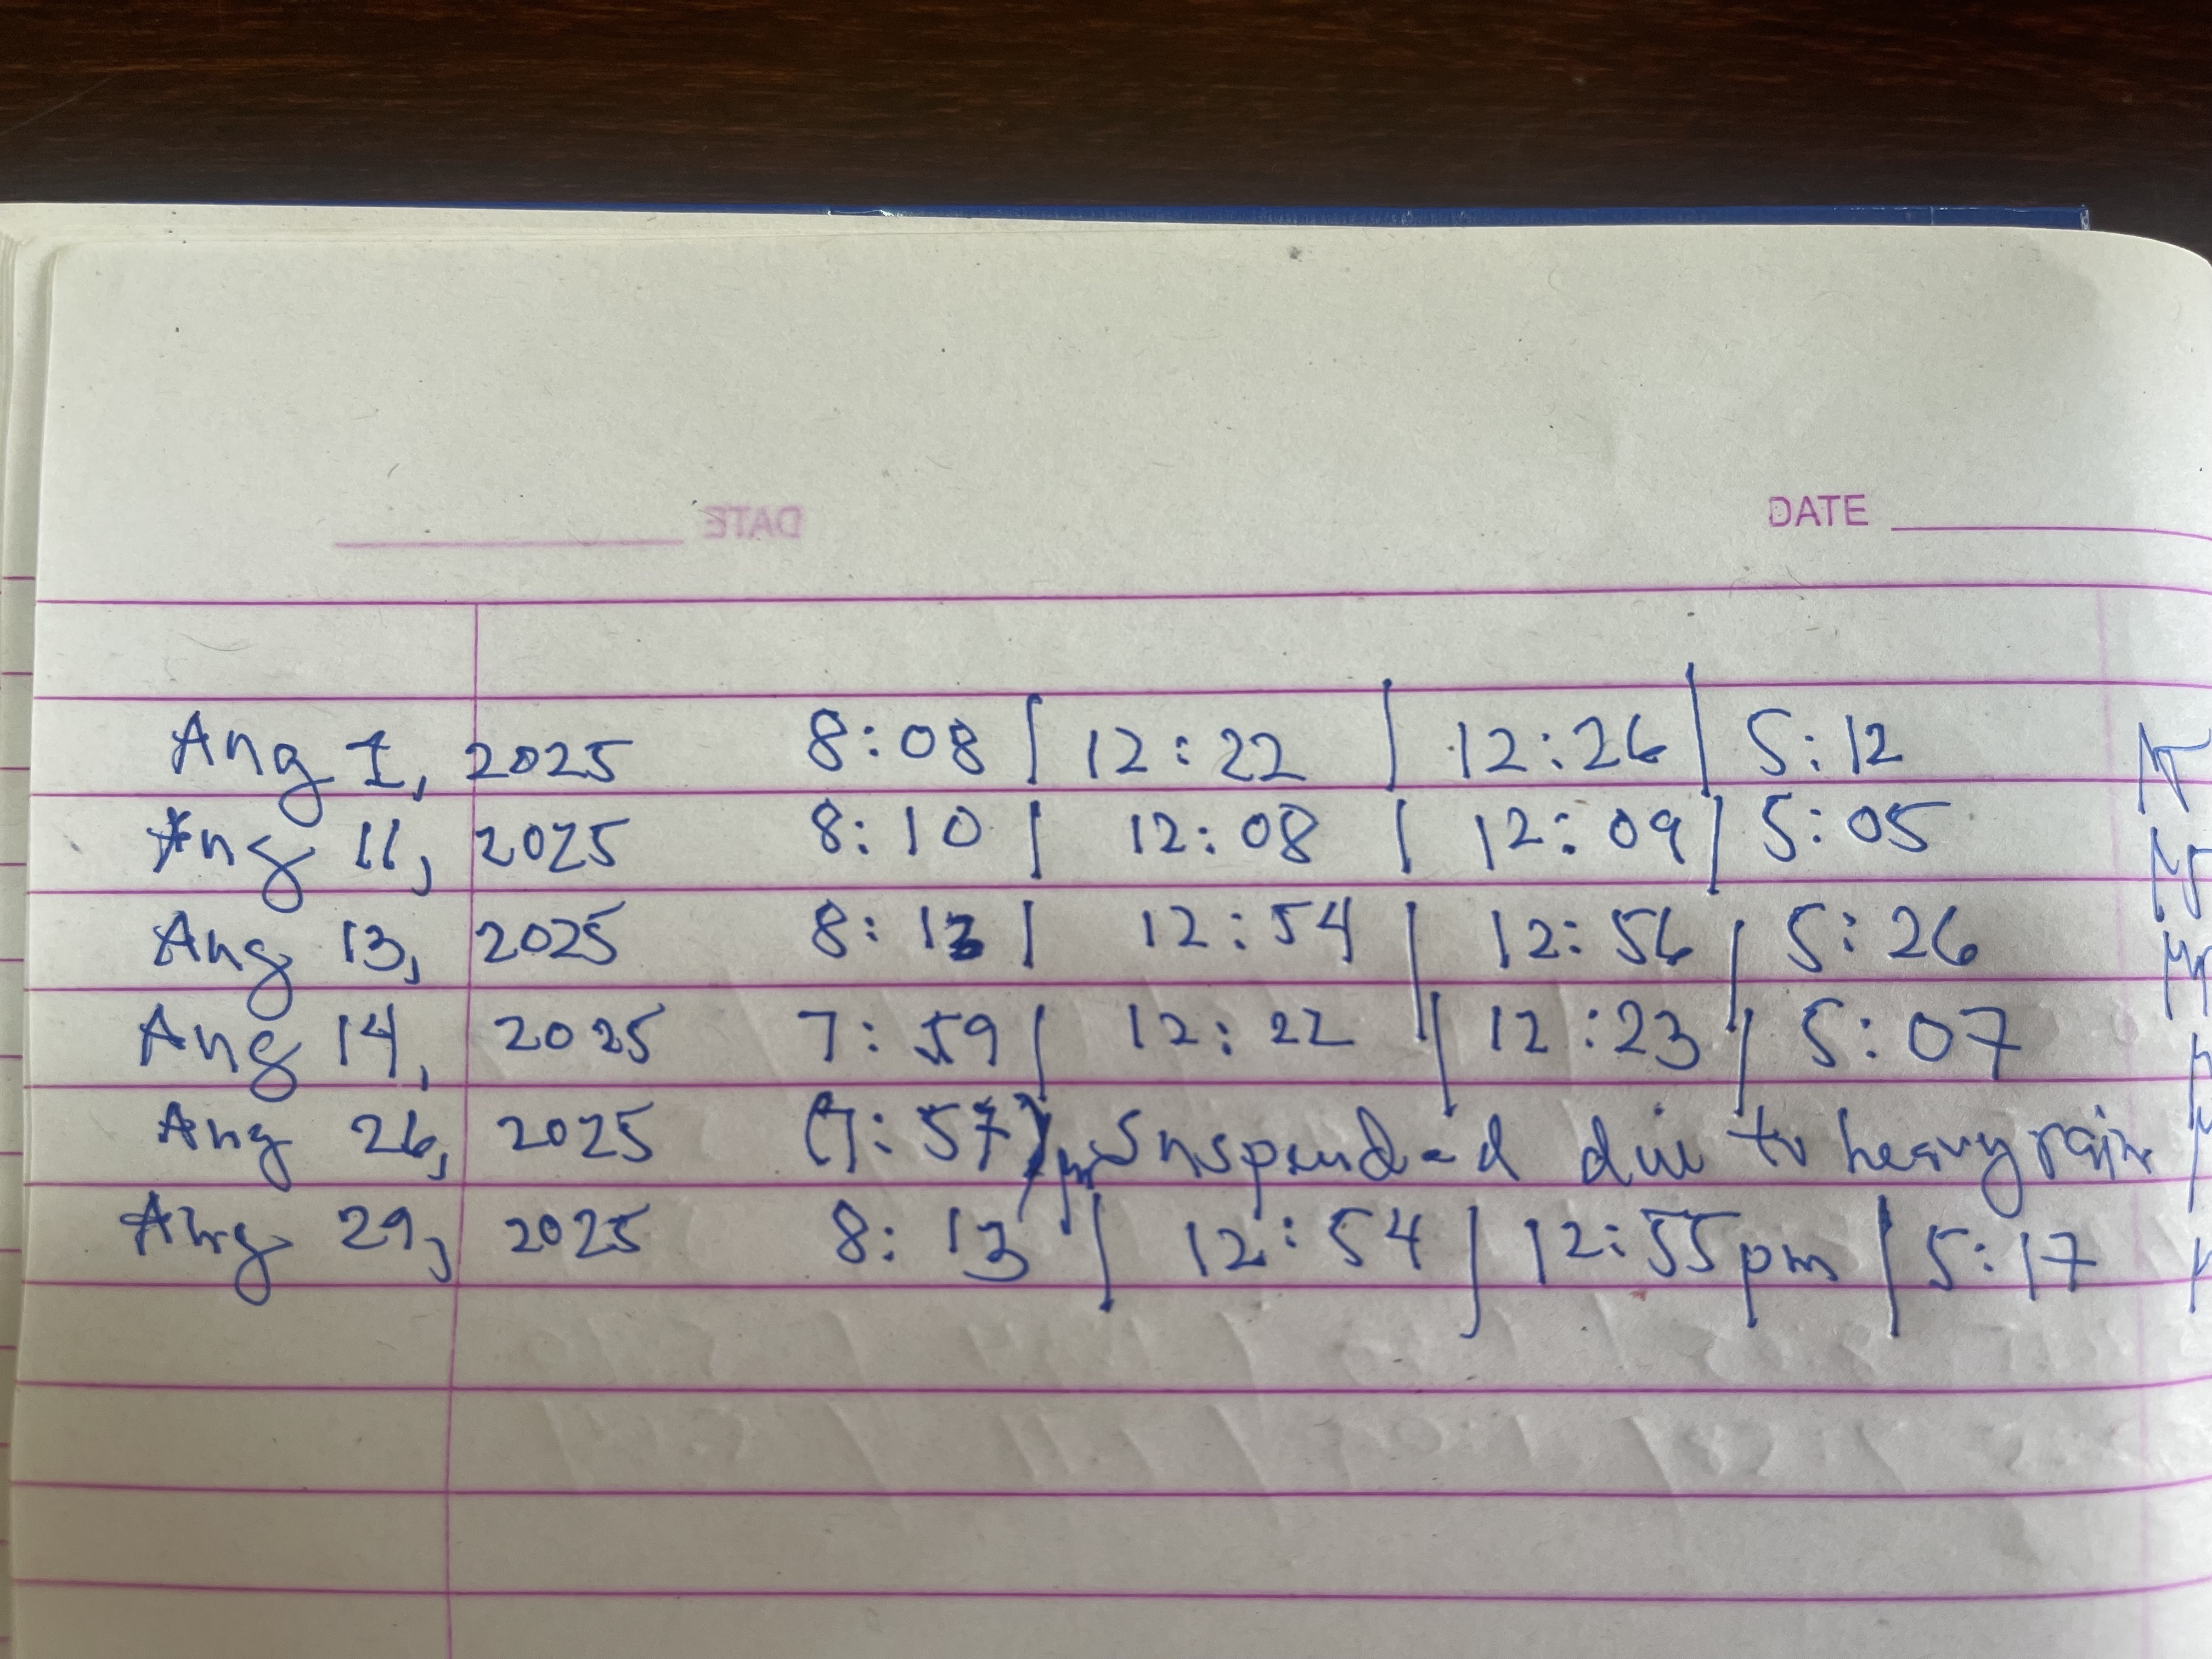 DATE
Aug 1, 2025 8:08 | 12:22 | 12:26 | 5:12
Aug 11, 2025 8:10 | 12:08 | 12:09 | 5:05
Aug 13, 2025 8:13 | 12:54 | 12:56 | 5:26
Aug 14, 2025 7:59 | 12:22 | 12:23 | 5:07
Aug 26, 2025 (7:57) Suspended due to heavy rain
Aug 29, 2025 8:13 | 12:54 | 12:55pm | 5:17